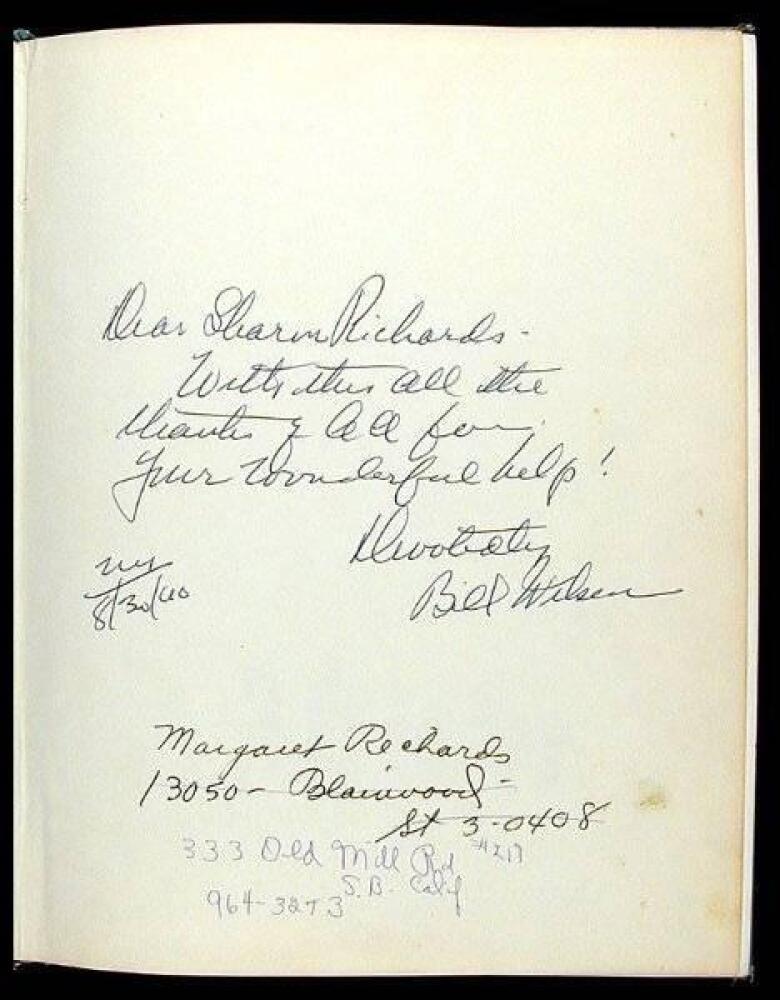 Dear Sharon Richards -
With this all the
thanks of AA for
your wonderful help!
Devotedly
Bill Wilson
NY
8/30/60
Margaret Richards
13050 -
St 3-0408
333 Old Mill Rd
S.B. Calif
964-3273